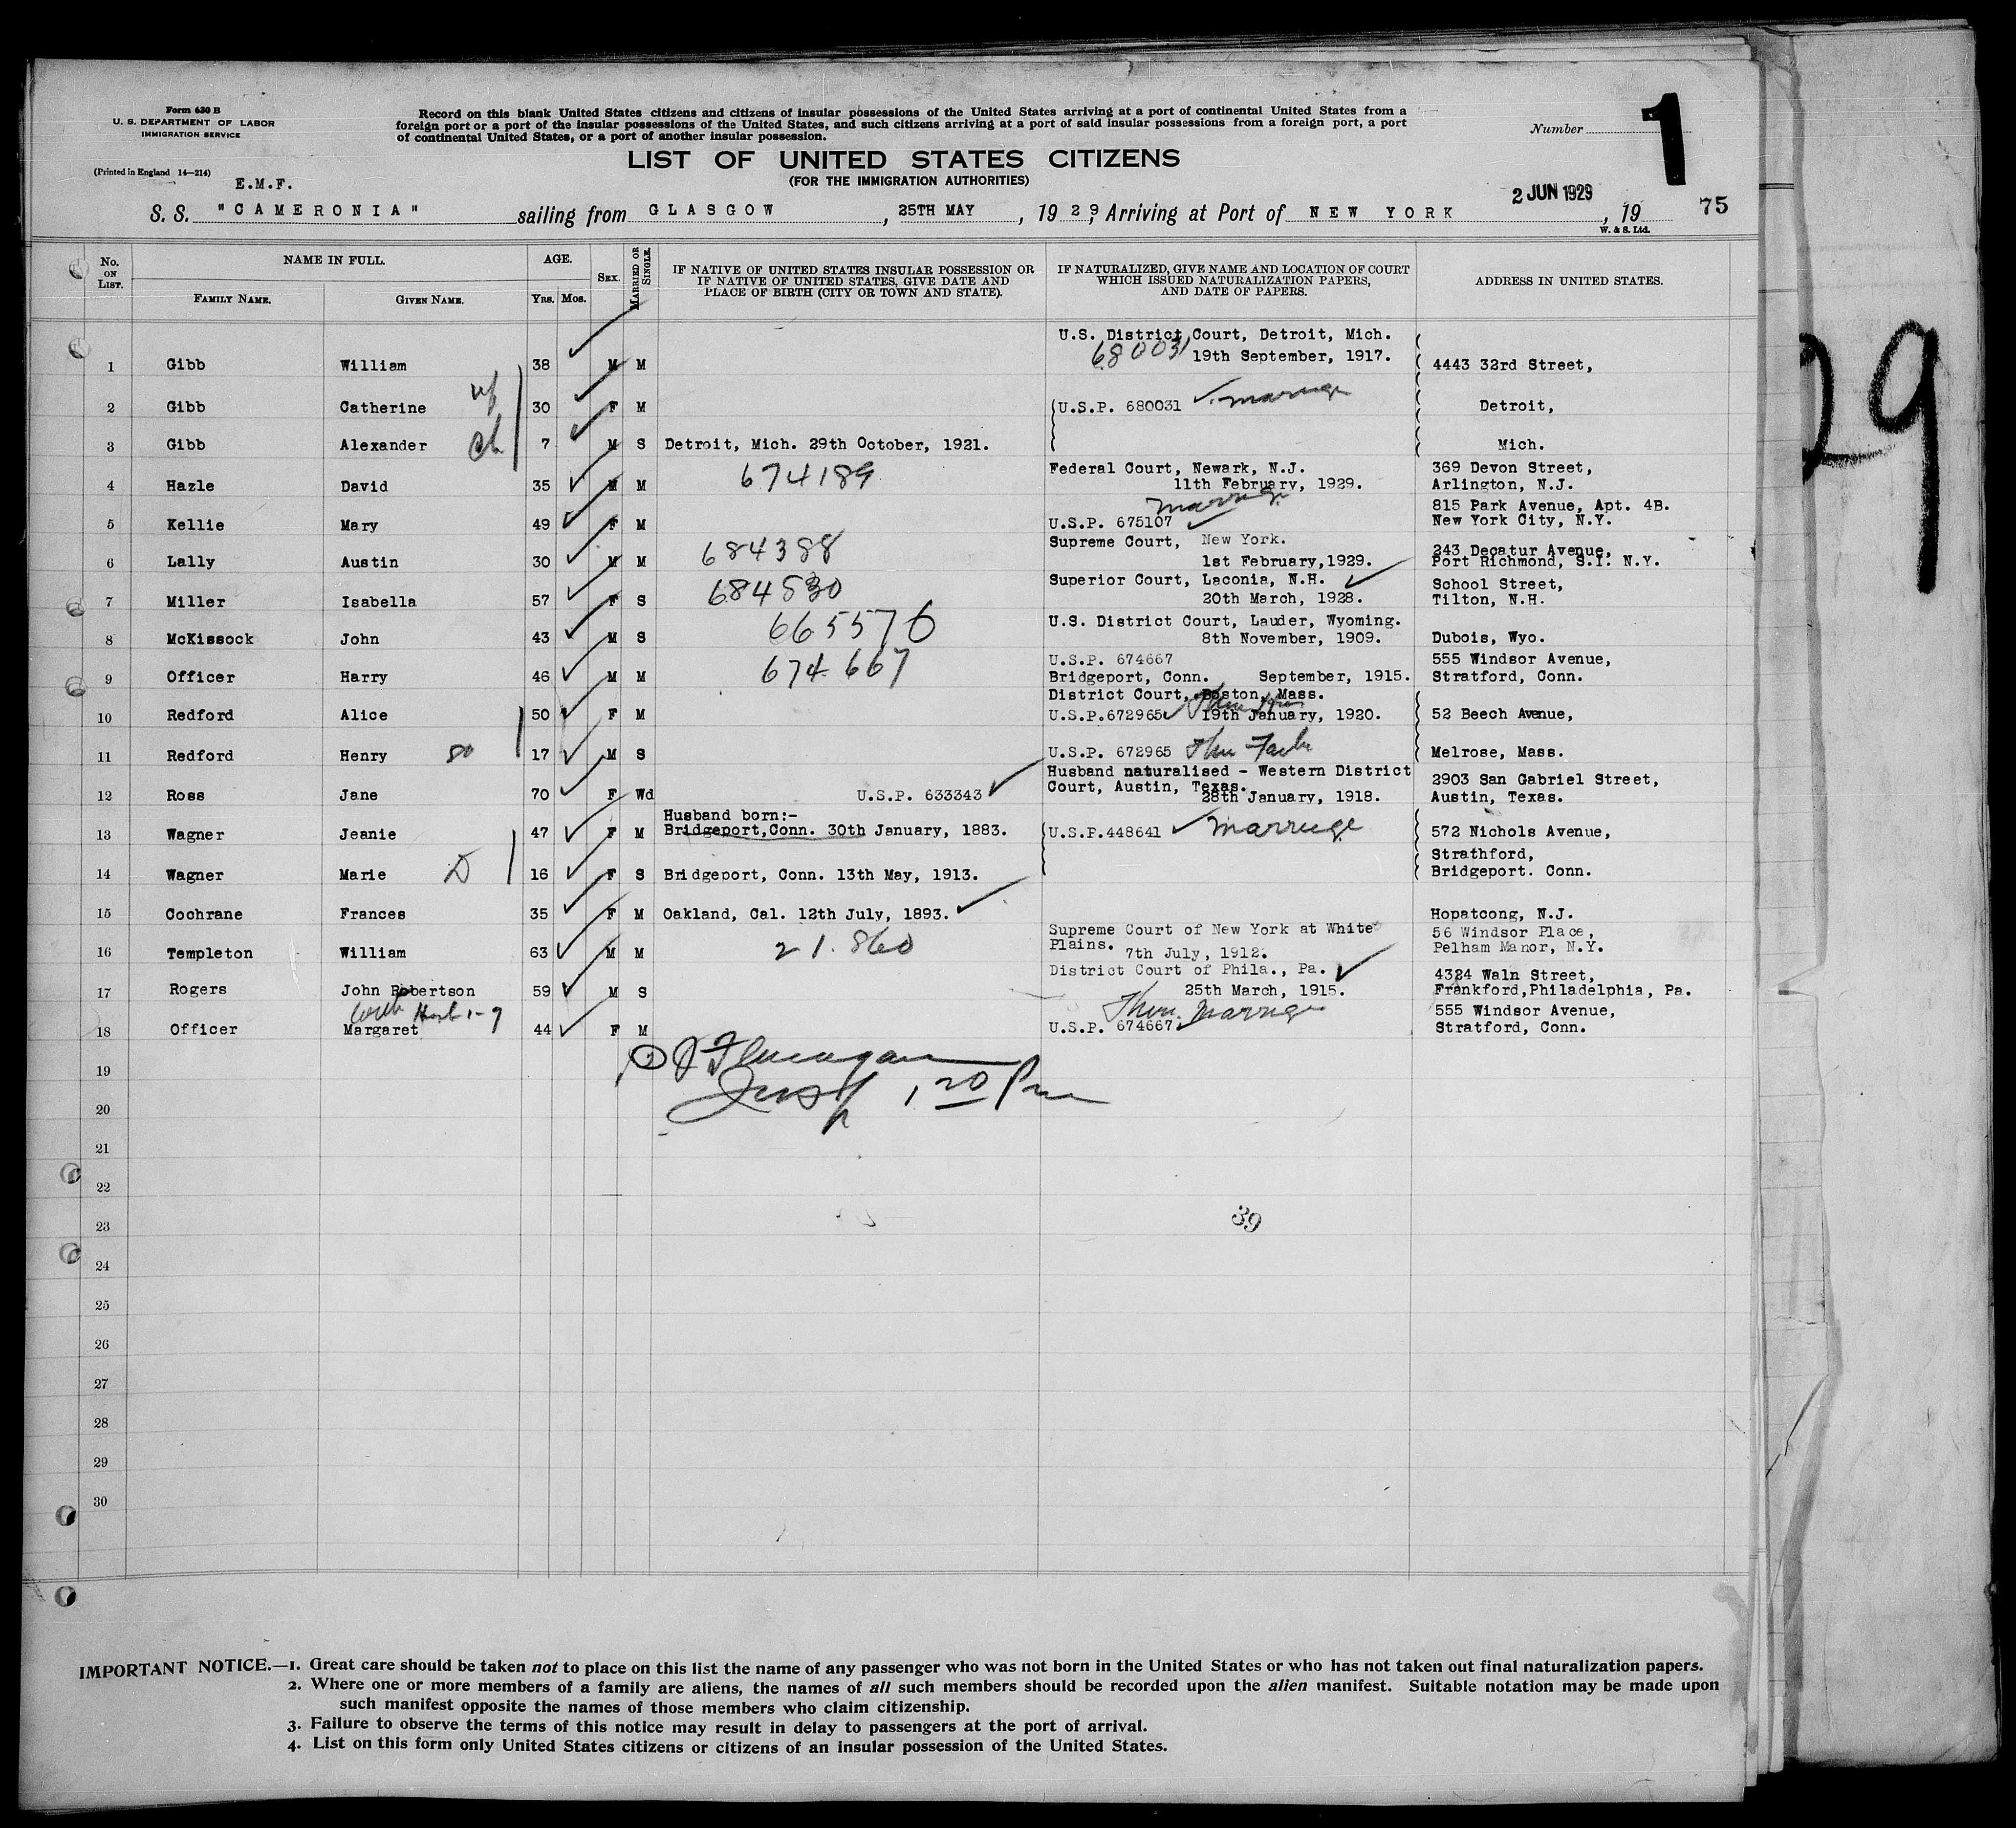 Form 630 B
U. S. DEPARTMENT OF LABOR
IMMIGRATION SERVICE
(Printed in England 14—214)
Record on this blank United States citizens and citizens of insular possessions of the United States arriving at a port of continental United States from a
foreign port or a port of the insular possessions of the United States, and such citizens arriving at a port of said insular possessions from a foreign port, a port
of continental United States, or a port of another insular possession.
Number 1
LIST OF UNITED STATES CITIZENS
(FOR THE IMMIGRATION AUTHORITIES)
E.M.F.
S. S. "CAMERONIA" sailing from GLASGOW, 25TH MAY, 1929, Arriving at Port of NEW YORK 2 JUN 1929, 19 75
W. & S. Ltd.
No. ON LIST. NAME IN FULL. AGE. SEX. MARRIED OR SINGLE. IF NATIVE OF UNITED STATES INSULAR POSSESSION OR IF NATIVE OF UNITED STATES, GIVE DATE AND PLACE OF BIRTH (CITY OR TOWN AND STATE). IF NATURALIZED, GIVE NAME AND LOCATION OF COURT WHICH ISSUED NATURALIZATION PAPERS, AND DATE OF PAPERS. ADDRESS IN UNITED STATES.
FAMILY NAME. GIVEN NAME. Yrs. Mos.
U.S. District Court, Detroit, Mich.
1 Gibb William 38 M M 680031 19th September, 1917. 4443 32rd Street,
2 Gibb Catherine wf 30 F M U.S.P. 680031 marriage Detroit,
3 Gibb Alexander ch 7 M S Detroit, Mich. 29th October, 1921. Mich.
Federal Court, Newark, N.J. 369 Devon Street,
4 Hazle David 35 M M 674189 11th February, 1929. Arlington, N.J.
marriage 815 Park Avenue, Apt. 4B.
5 Kellie Mary 49 F M U.S.P. 675107 New York City, N.Y.
Supreme Court, New York. 243 Decatur Avenue,
6 Lally Austin 30 M M 684388 1st February,1929. Port Richmond, S.I. N.Y.
Superior Court, Laconia, N.H. School Street,
7 Miller Isabella 57 F S 684530 20th March, 1928. Tilton, N.H.
U.S. District Court, Lauder, Wyoming.
8 McKissock John 43 M S 665576 8th November, 1909. Dubois, Wyo.
U.S.P. 674667 555 Windsor Avenue,
9 Officer Harry 46 M M 674667 Bridgeport, Conn. September, 1915. Stratford, Conn.
District Court, Boston, Mass.
10 Redford Alice 50 F M U.S.P.672965 19th January, 1920. 52 Beech Avenue,
11 Redford Henry 17 M S U.S.P. 672965 Melrose, Mass.
Husband naturalised - Western District 2903 San Gabriel Street,
Court, Austin, Texas.
12 Ross Jane 70 F Wd U.S.P. 633343 28th January, 1918. Austin, Texas.
Husband born:-
13 Wagner Jeanie 47 F M Bridgeport,Conn. 30th January, 1883. U.S.P.448641 marriage 572 Nichols Avenue,
Strathford,
14 Wagner Marie D 16 F S Bridgeport, Conn. 13th May, 1913. Bridgeport. Conn.
15 Cochrane Frances 35 F M Oakland, Cal. 12th July, 1893. Hopatcong, N.J.
Supreme Court of New York at White 56 Windsor Place,
16 Templeton William 63 M M 21.860 Plains. 7th July, 1912. Pelham Manor, N.Y.
District Court of Phila., Pa. 4324 Waln Street,
17 Rogers John Robertson 59 M S 25th March, 1915. Frankford,Philadelphia, Pa.
marriage 555 Windsor Avenue,
18 Officer Margaret 44 F M U.S.P. 674667 Stratford, Conn.
19
20
21
22
23
39
24
25
26
27
28
29
30
IMPORTANT NOTICE.—1. Great care should be taken not to place on this list the name of any passenger who was not born in the United States or who has not taken out final naturalization papers.
2. Where one or more members of a family are aliens, the names of all such members should be recorded upon the alien manifest. Suitable notation may be made upon
such manifest opposite the names of those members who claim citizenship.
3. Failure to observe the terms of this notice may result in delay to passengers at the port of arrival.
4. List on this form only United States citizens or citizens of an insular possession of the United States.